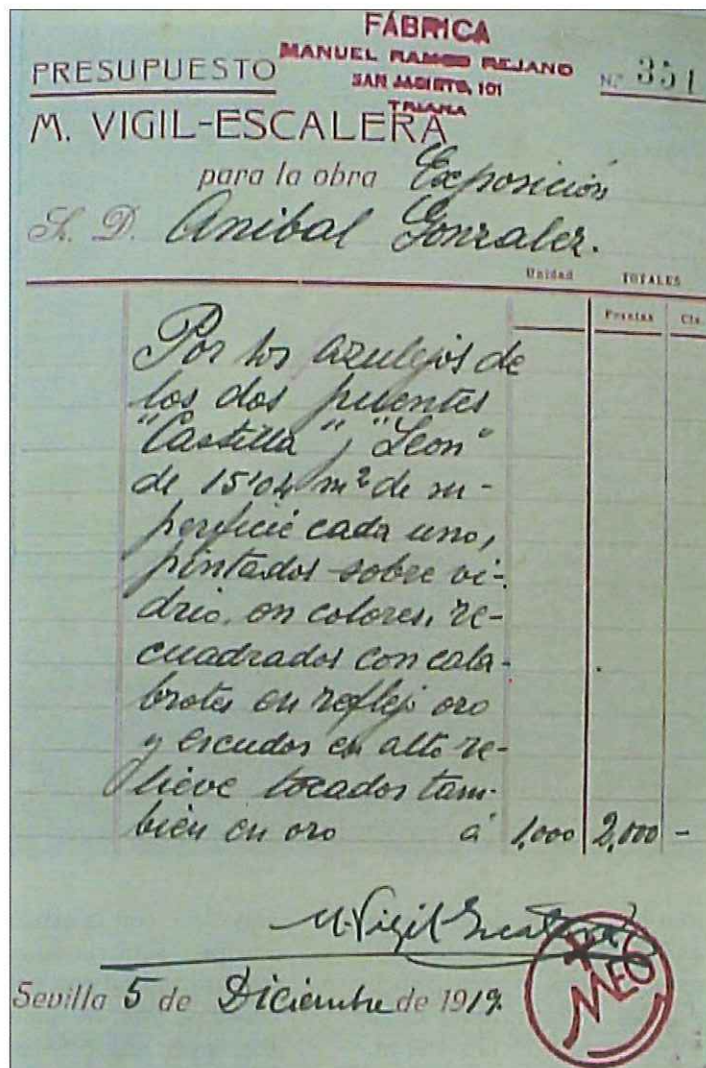 FÁBRICA
MANUEL RAMOS REJANO
SAN JACINTO, 101
TRIANA
PRESUPUESTO
N.º 351
M. VIGIL-ESCALERA
para la obra Exposición
Sr. D. Anibal Gonzalez.
Unidad TOTALES
Pesetas Cts.
Por los azulejos de
los dos puentes
"Castilla" y "Leon"
de 15'04 m² de su-
perficie cada uno,
pintados sobre vi-
drio, en colores, re-
cuadrados con cala-
brotes en reflejo oro
y escudos en alto re-
lieve tocados tam-
bién en oro á 1,000 2,000 -
M. Vigil-Escalera
MEC
Sevilla 5 de Diciembre de 1919.